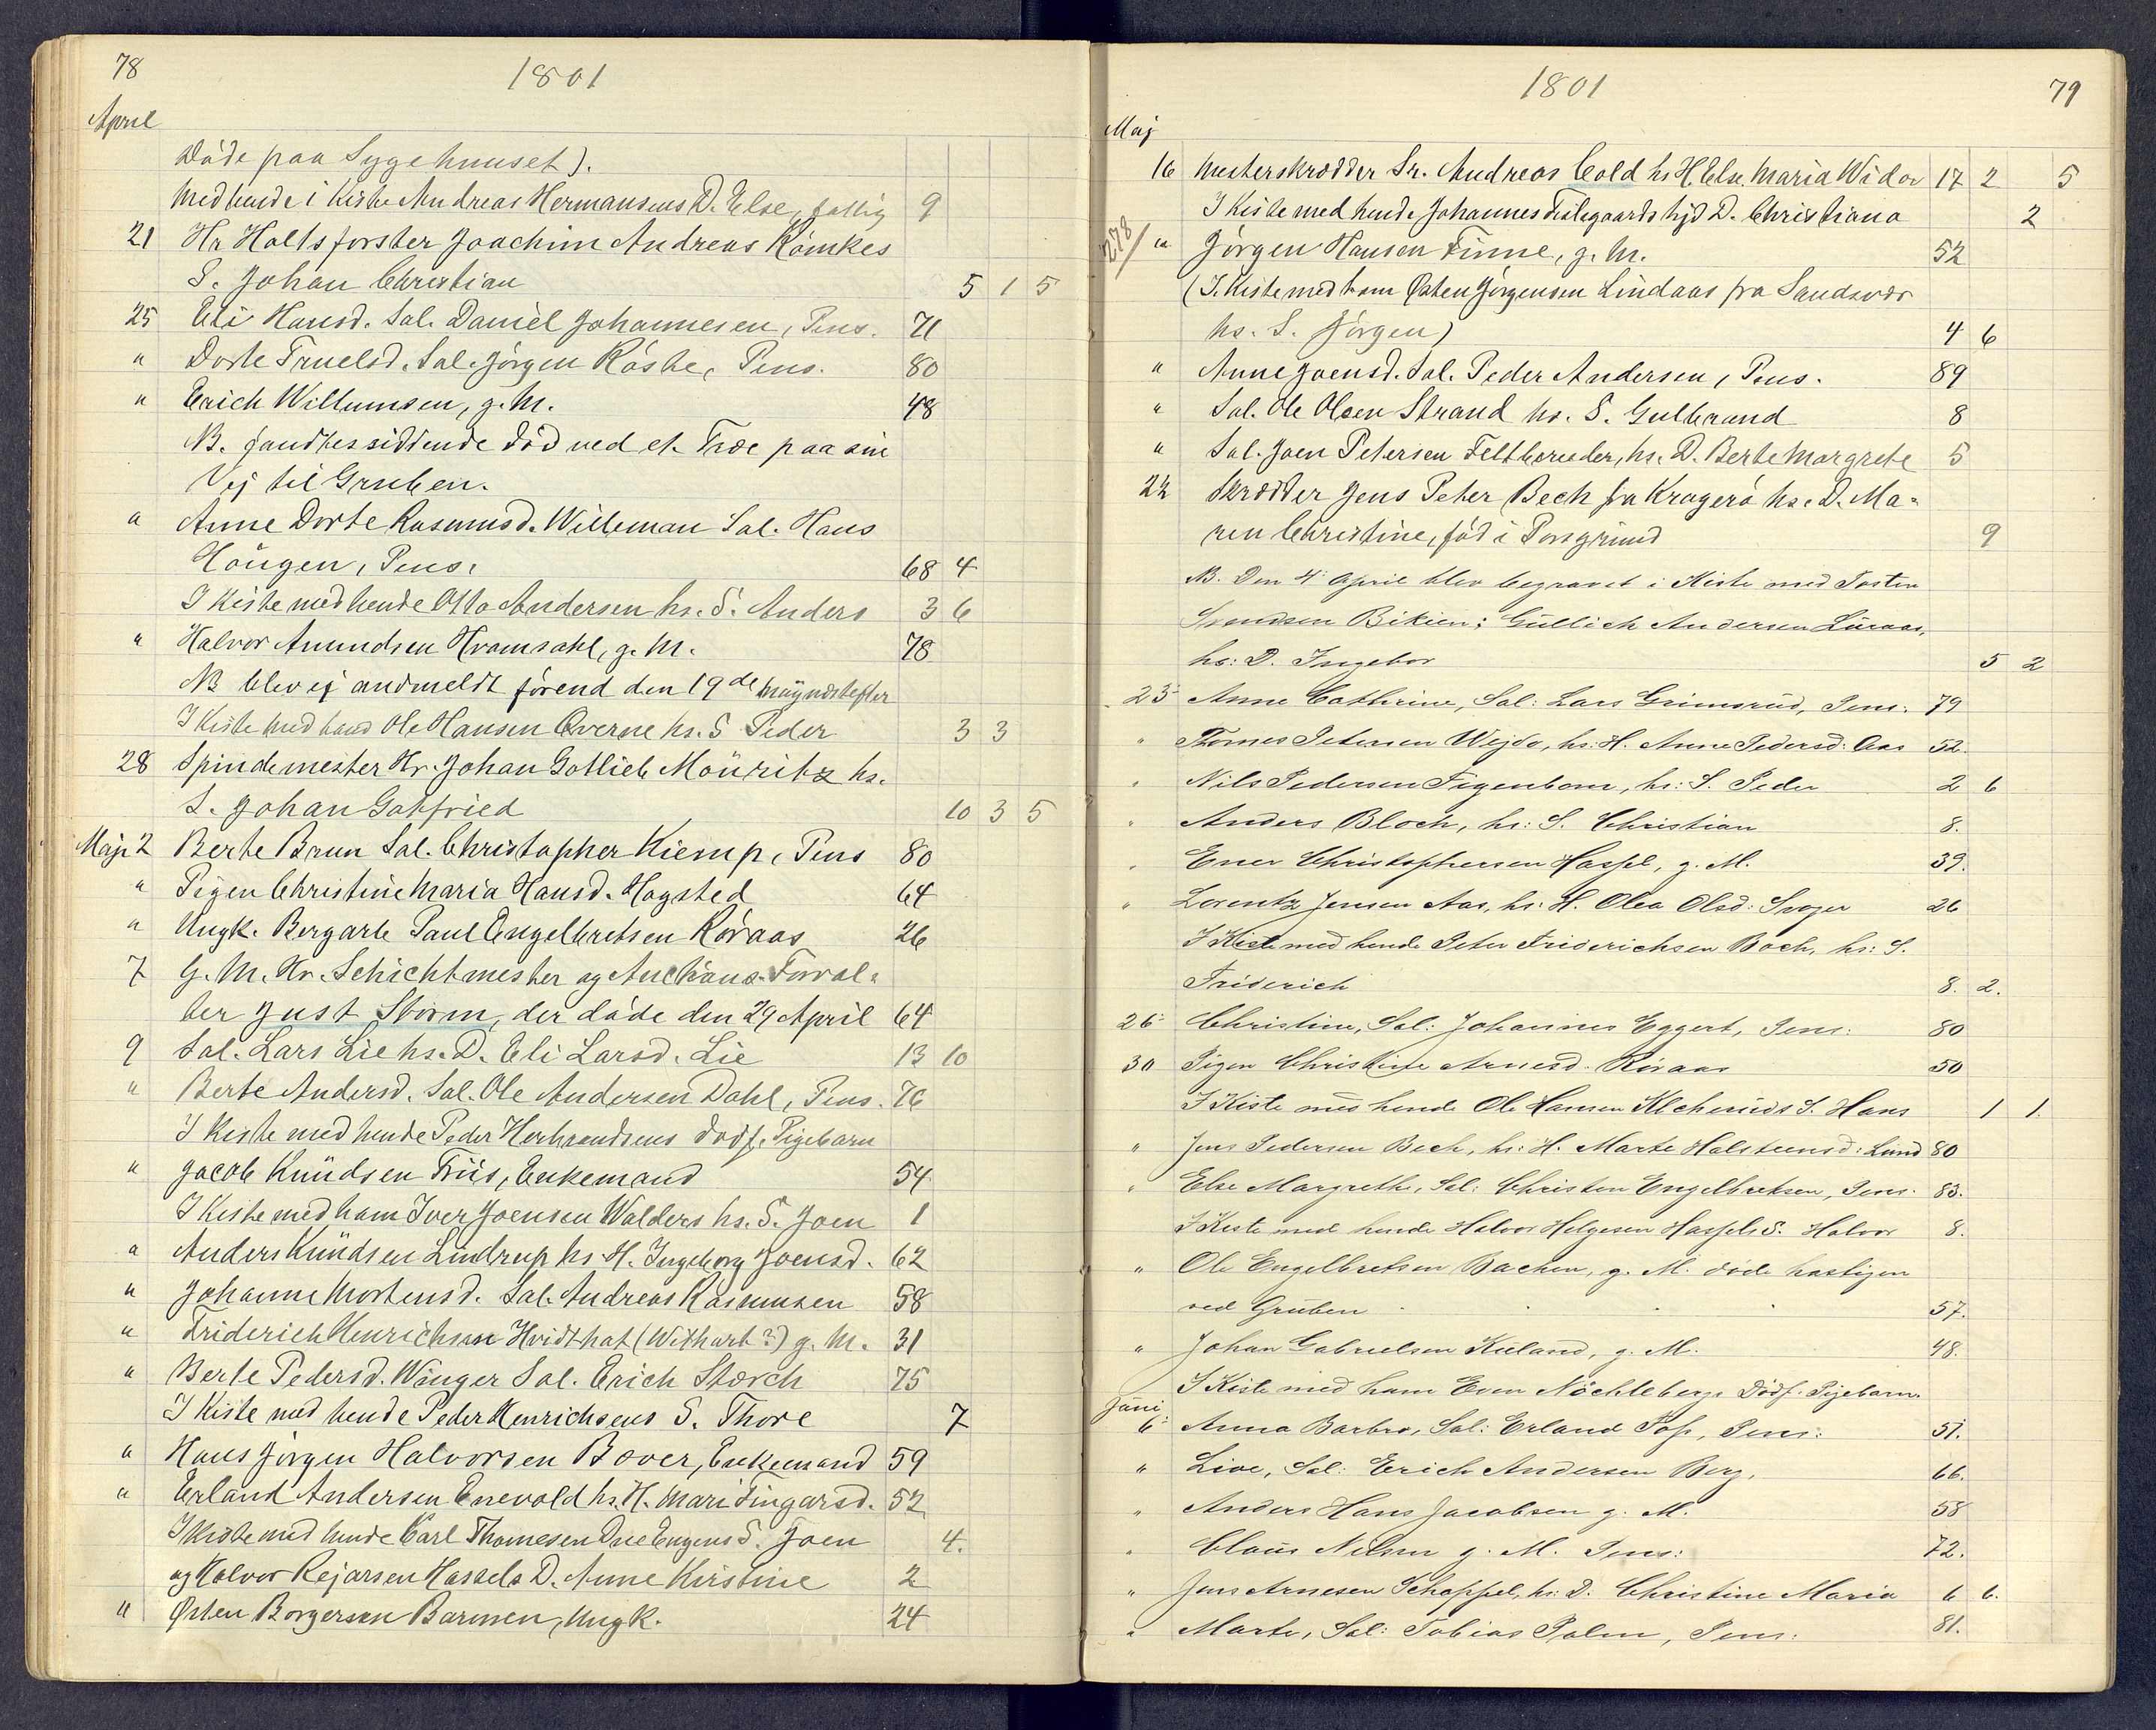 78
1801
April
døde paa Sygehuuset).
Med hende i Kiste Andreas Hermansens D. Else, fattig 9
21 Hr Holtsforster Joachim Andreas Römkes
S. Johan Christian 5 1 5
25 Eli Hansd. Sal. Daniel Johannesen, Pens. 71
" Dorte Truelsd. Sal. Jörgen Röste, Pens. 80
" Erich Willumsen, g. M. 48
NB. fandtes siddende död ved et Træ paa sin
Vej til Gruben.
" Anne Dorte Rasmusd. Willeman Sal. Hans
Höugen, Pens. 68 4
I Kiste med hende Otto Andersen hs. S. Anders 3 6
" Halvor Amundsen Hvamsahl, g. M. 78
NB blev ej andmeldt förend den 19de
I Kiste med ham Ole Hansen Qverne hs. S Peder 3 3
28 Spindemester Hr. Johan Gotlieb Möuritz hs.
S. Johan Gotfried 10 3 5
Maji 2 Berte Brun Sal. Christopher Kiemp, Pens 80
" Pigen Christine Maria Hansd. Hogsted 64
" Ungk. Bergarb Paul Engelbretsen Röraas 26
7 G. M. Hr. Schichtmester og Auctions-Forval-
ter Just Storm, der döde den 29 April 64
9 Sal. Lars Lie hs. D. Eli Larsd. Lie 13 10
" Berte Andersd. Sal. Ole Andersen Dahl, Pens. 76
I Kiste med hende Peder Herbrandsens dödf. Pigebarn
" Jacob Knüdsen Friis, Enkemand 54
I Kiste med ham Iver Joensen Walders hs. S. Joen 1
" Anders Knüdsen Lindrup hs. H. Ingeborg Joensd. 62
" Johanne Mortensd. Sal. Andreas Rasmusen 58
" Friderich Henrichsen Hvidthat (Witharb?) g. M. 31
" Berte Pedersd. Winger Sal. Erich Storch 75
I Kiste med hende Peder Henrichsens S. Thore 7
" Hans Jörgen Halvorsen Bover, Enkemand 59
" Erland Andersen Enevold hs. H. Mari Tingarsd. 52
I Kiste med hende Carl Thomesen S. Joen 4.
og Halvor Rejarsen Hassels D. Anne Kirstine 2
" Østen Borgersen Barmen, Ungk. 24
1801
79
Maj
16 Mesterskrædder Sr. Andreas Cold hs. H. Else Maria Widør 17 2 5
I Kiste med hende Johannes D. Christiana 2
278/ " Jörgen Hansen Finne, g. M. 52
(I Kiste med ham Østen Jörgensen Lindaas fra Sandsvær
hs. S. Jörgen) 4 6
" Anne Joensd. Sal. Peder Andersen, Pens. 89
" Sal. Ole Olsen Strand hs. S. Gulbrand 8
" Sal. Joen Petersen Feltbereder, hs. D. Berte Margrete 5
22 Skrædder Jens Peter Bech fra Kragerö hs. D. Ma-
ren Christine, föd i Porsgrund 9
NB. Den 4' April blev begravet i Kiste med Tosten
Svendsen Bikien: Güllich Andersen Lüraas,
hs: D. Ingebor 5 2
23 Anne Cathrine, Sal: Lars Grimsrud, Pens: 79
" Thomes Petersen Wejdø, hs: H. Anne Pedersd: Aas 52.
" Nils Pedersen Figenbom, hs: S. Peder 2 6
" Anders Bloch, hs: S. Christian 8.
" Ener Christophersen Hassel, g. M. 39.
" Lorentz Jensen Aas, hs: H. Olea Olsd: Svajer 26
I Kiste med hende Peter Friderichsen Boch, hs: S.
Friderich 8. 2.
26 Christine, Sal: Johannes Eggert, Pens: 80
30 Pigen Christine Arnesd. Röraas 50
I Kiste med hende Ole Hansen S. Hans 1 1.
" Jens Pedersen Bech, hs: H. Marte Holsteensd: Lund 80
" Else Margrethe, Sal: Christen Engelbretsen, Pens. 83.
I Kiste med hende Halvor Helgesen Hassels S. Halvor 8.
" Ole Engelbretsen Bachen, g. M. döde hastigen
ved Gruben 57.
" Johan Gabrielsen Küland, g. M. 48.
I Kiste med ham Even Nöchlebergs Dödf. Pigebarn.
Juni
6 Anna Barbro, Sal: Erland Foss, Pens: 51.
" Live, Sal: Erich Andersen Berg, 66.
" Anders Hans Jacobsen g. M. 58
" Claus Nilsen g. M. Pens: 72.
" Jens Arnesen Schoppel, hs: D. Christine Maria 6 6.
" Marte, Sal: Tobias Palm, Pens: 81.